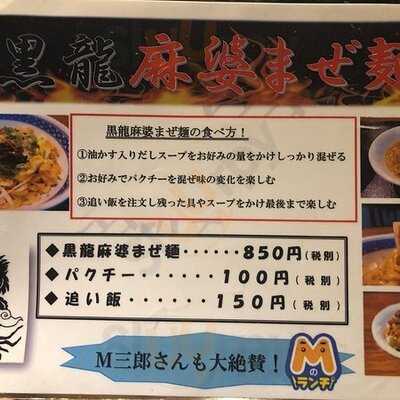 黒龍麻婆まぜ麺
黒龍麻婆まぜ麺の食べ方！
①油かす入りだしスープをお好みの量をかけしっかり混ぜる
②お好みでパクチーを混ぜ味の変化を楽しむ
③追い飯を注文し残った具やスープをかけ最後まで楽しむ
◆黒龍麻婆まぜ麺・・・・・・850円(税別)
◆パクチー・・・・・・・100円(税別)
◆追い飯・・・・・・・150円(税別)
M三郎さんも大絶賛！
Mのランチ